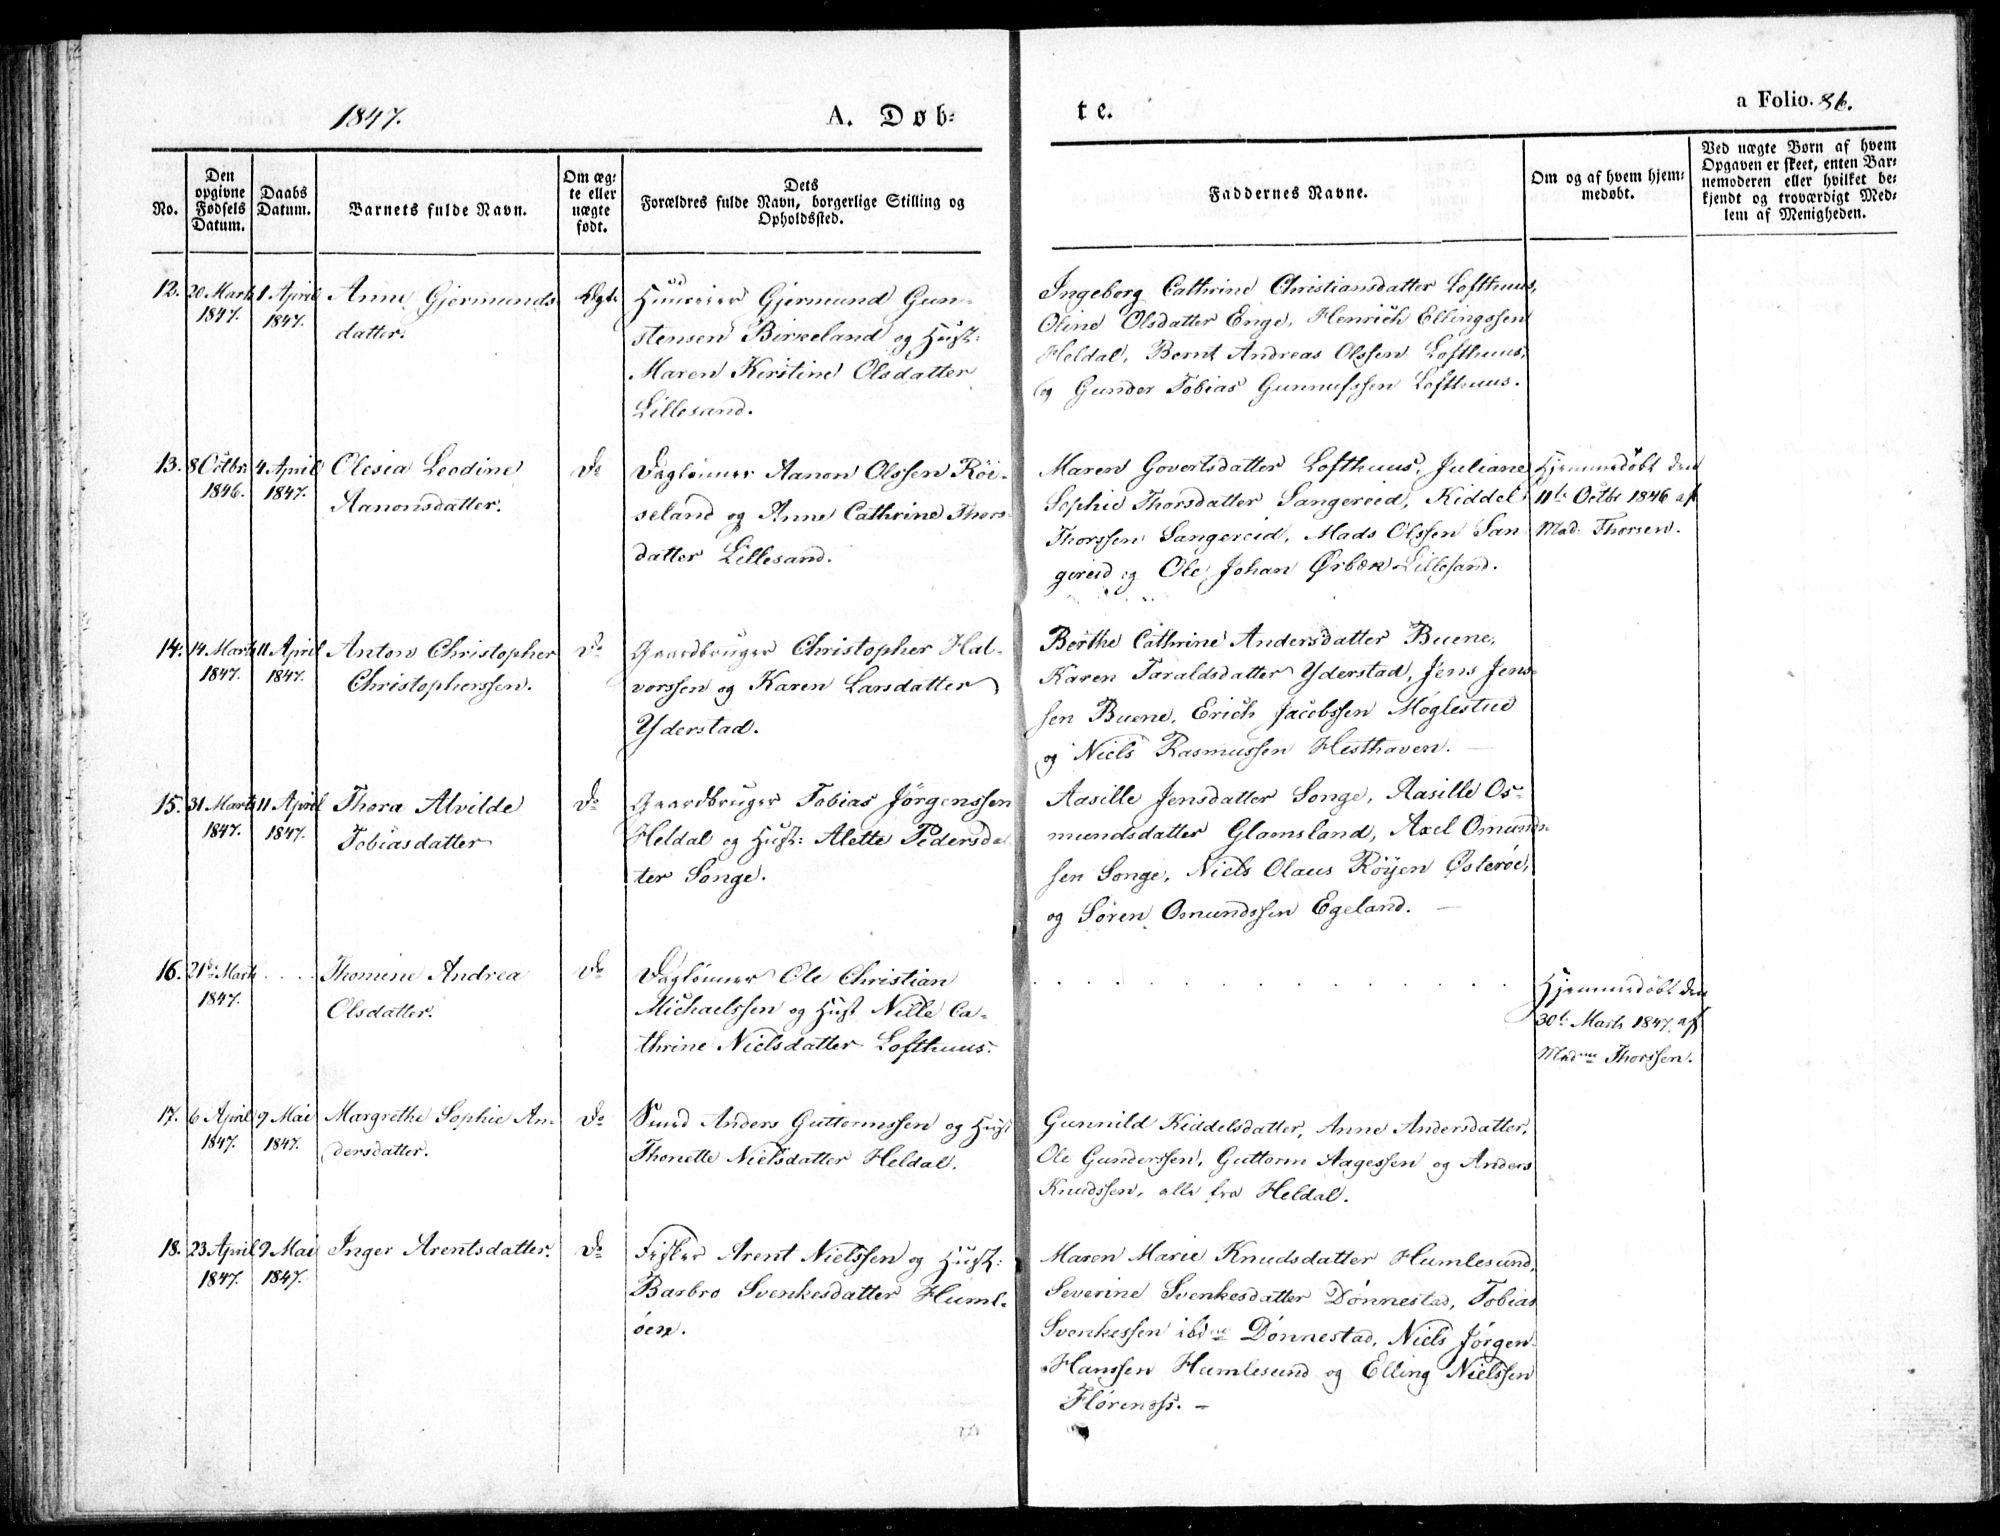 1847.
A. Døb-
te.
a Folio. 86.
No.
Den
opgivne
Fødsels
Datum.
Daabs
Datum.
Barnets fulde Navn.
Om æg-
te eller
uægte
født.
Dets
Forældres fulde Navn, borgerlige Stilling og
Opholdssted.
Faddernes Navne.
Om og af hvem hjem-
medøbt.
Ved uægte Børn af hvem
Opgaven er skeet, enten Bar-
nemoderen eller hvilket be-
kjendt og troværdigt Med-
lem af Menigheden.
12.
20 Marts
1847.
1 April
1847.
Anne Gjermunds-
datter.
Ægt.
Huureier Gjermund Gun-
stensen Birkeland og Hust:
Maren Kirstine Olsdatter
Lillesand.
Ingeborg Cathrine Christiansdatter Lofthuus,
Oline Olsdatter Enge, Henrich Ellingssen
Heldal, Bernt Andreas Olssen Lofthuus,
og Gunder Tobias Gunnufssen Lofthuus.
13.
8 Octbr
1846.
4 April
1847.
Olesia Leodine
Aanonsdatter.
Do
Daglønner Aanon Olssen Röi-
seland og Anne Cathrine Thors-
datter Lillesand.
Maren Govertsdatter Lofthuus, Juliane
Sophie Thorsdatter Sangereid, Kiddel
Thorssen Sangereid, Mads Olssen San
gereid og Ole Johan Ørbæk Lillesand.
Hjemmedøbt den
11te Octbr 1846 af
Mad. Thorsen.
14.
14 Marts
1847.
11 April
1847.
Anton Christopher
Christopherssen.
Do
Gaardbruger Christopher Hal-
vorssen og Karen Larsdatter
Yderstad.
Berthe Cathrine Andersdatter Buene,
Karen Taraldsdatter Yderstad, Jens Jens-
sen Buene, Erich Jacobssen Møglestue
og Niels Rasmussen Hesthaven. —
15.
31 Marts
1847.
11 April
1847.
Thora Alvilde
Tobiasdatter
Do
Gaardbruger Tobias Jørgenssen
Heldal og Hust: Alette Pedersdat-
ter Songe.
Aasille Jensdatter Songe, Aasille Os-
mundsdatter Glamsland, Axel Omunds-
sen Songe, Niels Olaus Röyen Østeröe,
og Søren Osmundssen Egeland. —
16.
21de Marts
1847.
. . . .
Thomine Andrea
Olsdatter.
Do
Daglønner Ole Christian
Michaelssen og Hust Nille Ca-
thrine Nielsdatter Lofthuus.
. . . . . . . . . . . . . . . .
Hjemmedøbt den
30te Marts 1847. af
Madme Thorssen.
17.
6 April
1847.
9 Mai
1847.
Margrethe Sophie An-
dersdatter.
Do
Smed Anders Guttormssen og Hust
Thonette Nielsdatter Heldal.
Gunnild Kiddelsdatter, Anne Andersdatter,
Ole Gunderssen, Guttorm Aagessen og Anders
Knudssen, alle fra Heldal.
18.
23 April
1847.
9 Mai
1847.
Inger Arentsdatter.
Do
Fisker Arent Nielssen og Hust:
Barbro Svenkesdatter Huml-
öen.
Maren Marie Knudsdatter Humlesund,
Severine Svenkesdatter Dönnestad, Tobias
Svenkessen Dönnestad, Niels Jørgen
Hanssen Humlesund og Elling Nielssen
Flørenæss. —